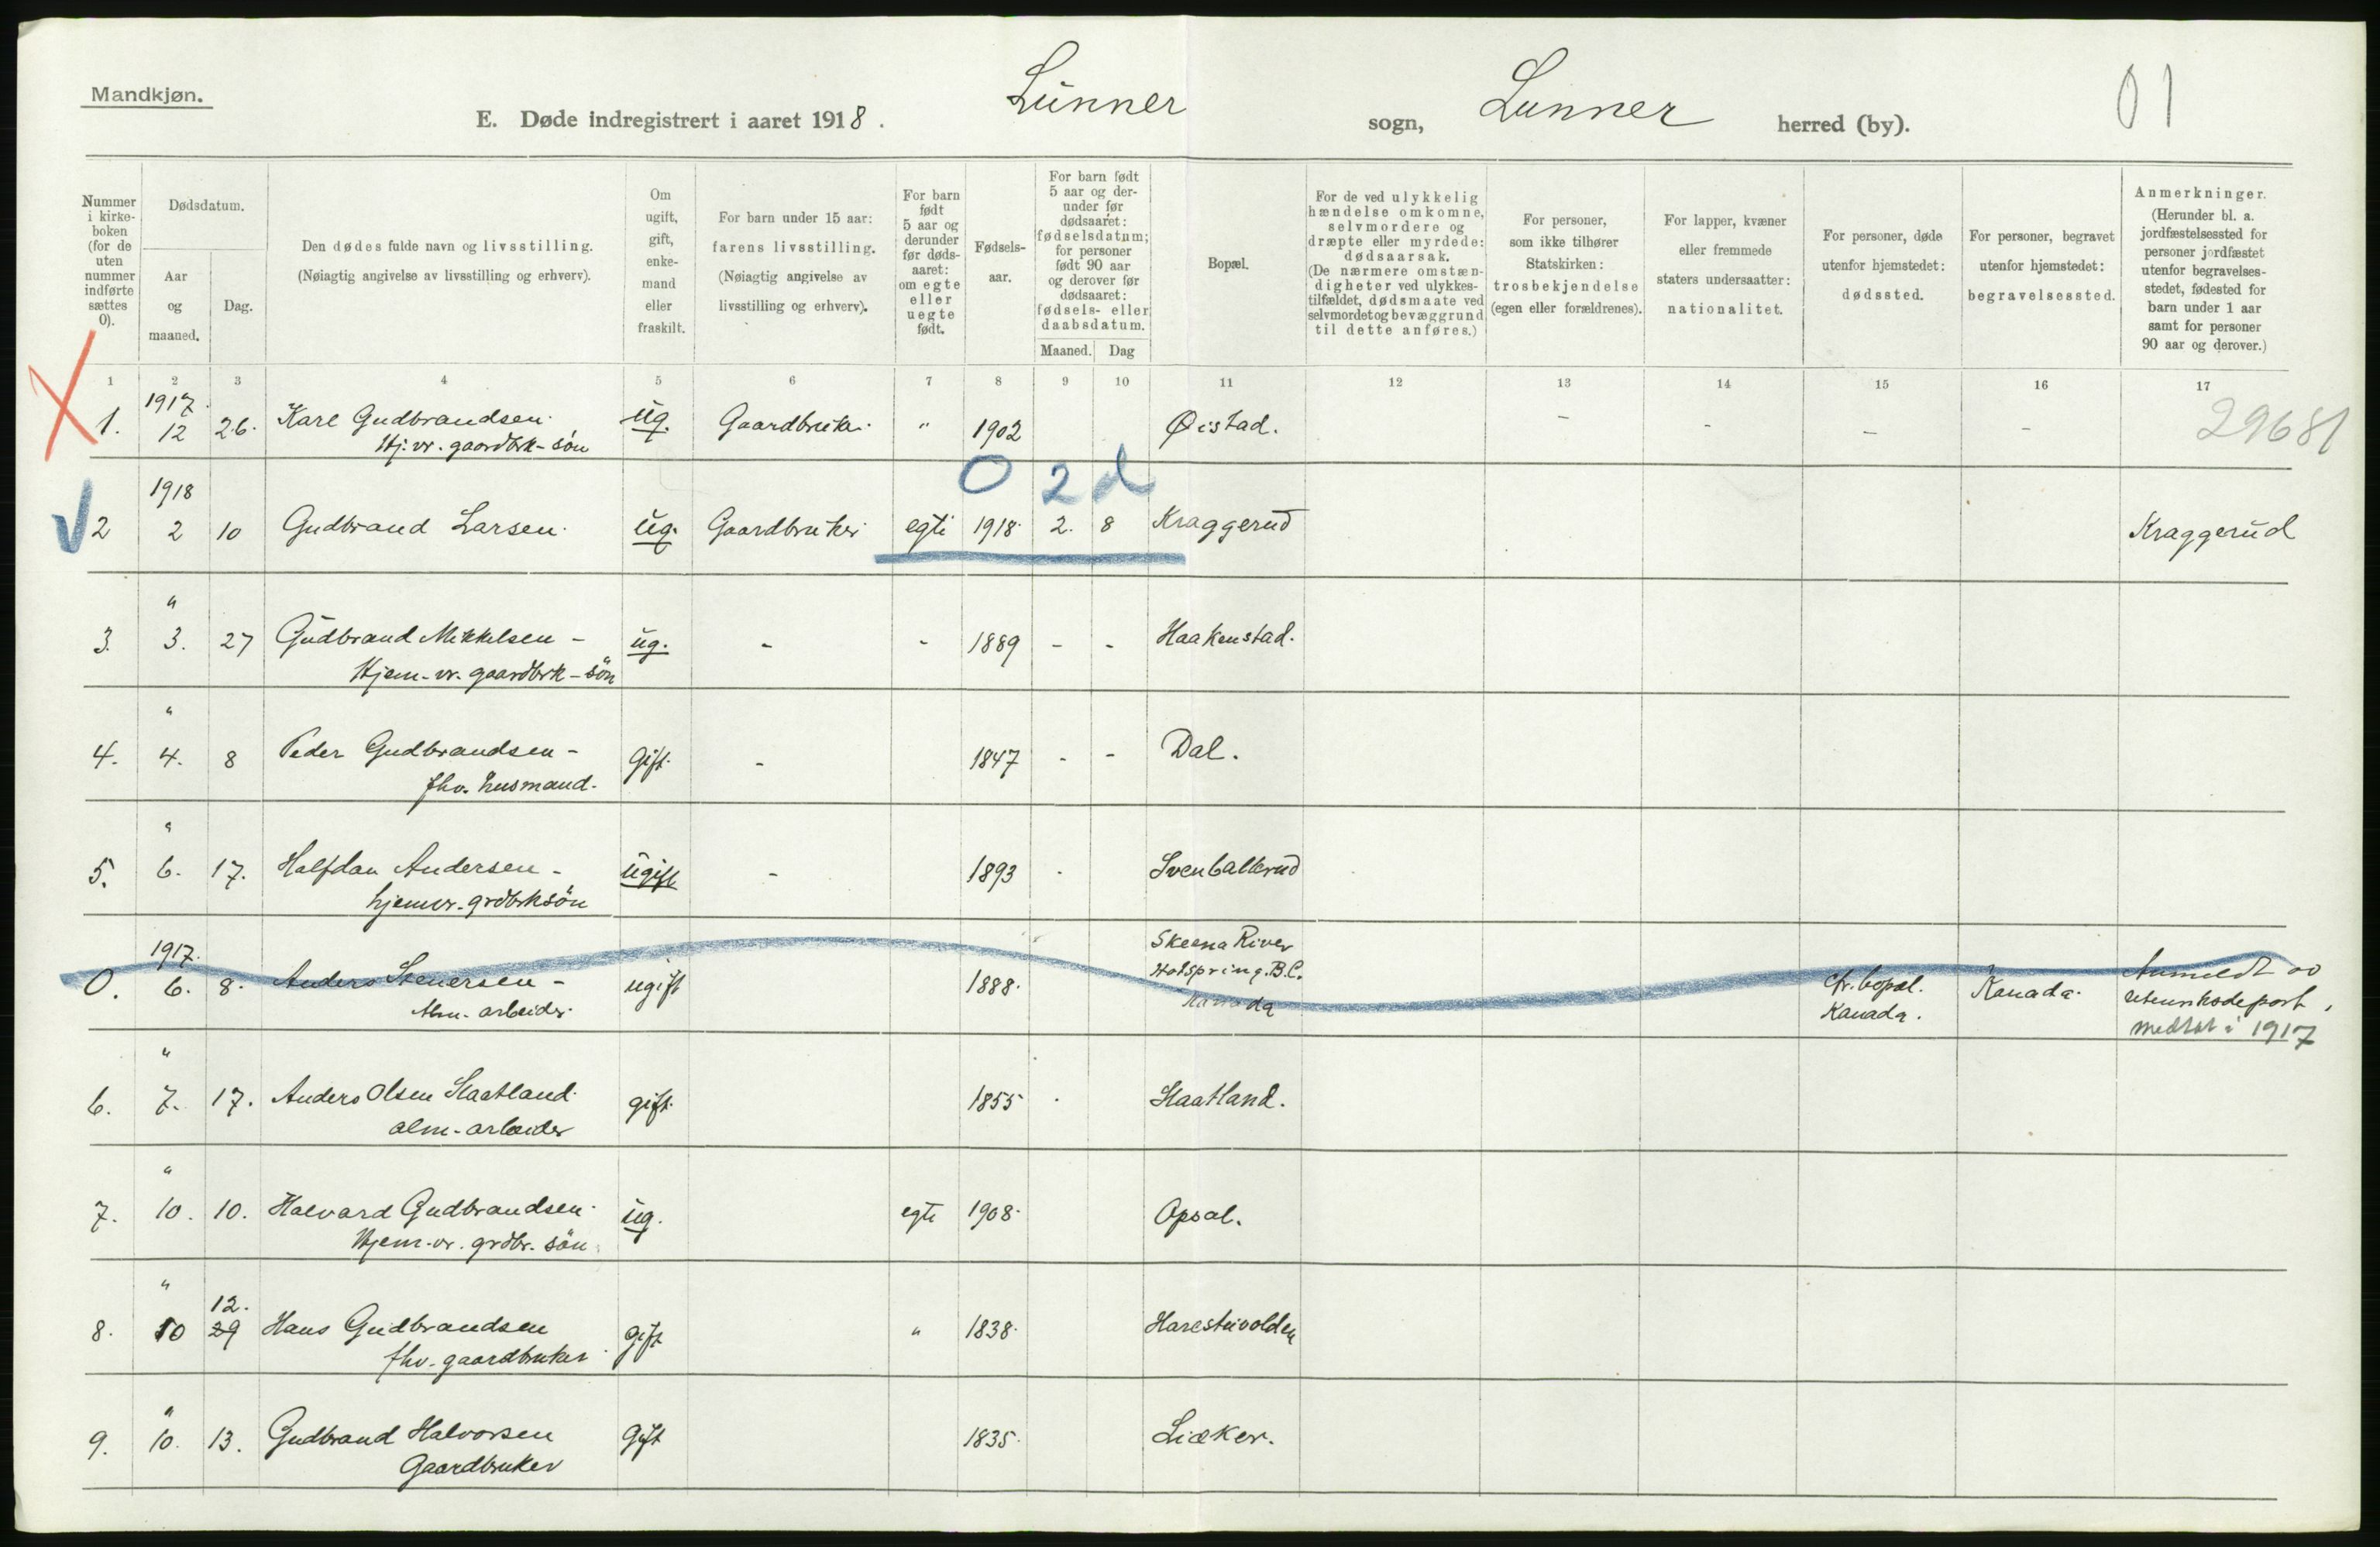 Mandkjøn.
E. Døde indregistrert i aaret 1918. Lunner sogn, Lunner herred (by). 01
Nummer i kirke-boken (for de uten nummer indførte sættes 0).
Dødsdatum.
Aar og maaned.
Dag.
Den dødes fulde navn og livsstilling.
(Nøiagtig angivelse av livsstilling og erhverv).
Om ugift, gift, enke-mand eller fraskilt.
For barn under 15 aar: farens livsstilling. (Nøiagtig angivelse av livsstilling og erhverv).
For barn født 5 aar og derunder før døds-aaret: om egte eller uegte født.
Fødsels-aar.
For barn født 5 aar og der-under før dødsaaret: fødselsdatum; for personer født 90 aar og derover før dødsaaret: fødsels- eller daabsdatum.
Maaned. Dag
Bopæl.
For de ved ulykkelig hændelse omkomne, selvmordere og dræpte eller myrdede: dødsaarsak. (De nærmere omstæn-digheter ved ulykkes-tilfældet, dødsmaate ved selvmordet og bevæggrund til dette anføres.)
For personer, som ikke tilhører Statskirken: trosbekjendelse (egen eller forældrenes).
For lapper, kvæner eller fremmede staters undersaatter: nationalitet.
For personer, døde utenfor hjemstedet: dødssted.
For personer, begravet utenfor hjemstedet: begravelsessted.
Anmerkninger. (Herunder bl. a. jordfæstelsessted for personer jordfæstet utenfor begravelses-stedet, fødested for barn under 1 aar samt for personer 90 aar og derover.)
1 2 3 4 5 6 7 8 9 10 11 12 13 14 15 16 17
1917.
1. 12 26. Karl Gudbrandsen. ug. Gaardbruker. " 1902 Øistad. - - - - 29681
Hj. vr. gaardbrk-søn
0 2 d
1918
2 2 10 Gudbrand Larsen. ug. Gaardbruker egte 1918. 2. 8 Kraggerud Kraggerud
"
3. 3. 27 Gudbrand Mikkelsen - ug. - - 1889 - - Haakenstad.
Hjem-vr. gaardbrk-søn
"
4. 4. 8 Peder Gudbrandsen - gift. - 1847 - - Dal.
fhv. husmand.
"
5. 6. 17. Halfdan Andersen - ugift - 1893 Svenballerud
hjemvr. grdbrksøn
1917. Skeena River
0. 6. 8. Anders Stenersen - ugift 1888. Hotspring. B.C. cfr. bopæl. Kanada. Anmeldt av
Alm. arbeider. Kanada Kanada. medtat i 1917
"
6. 7. 17. Anders Olsen Haatland. gift. 1855 Haatland.
alm. arbeider
"
7. 10. 10. Halvard Gudbrandsen. ug. egte 1908. Opsal.
Hjem-vr. grdbr. søn
" 12.
8. 10 29 Hans Gudbrandsen gift " 1838. Harestuvolden
fhv. gaardbruker
"
9. 10. 13. Gudbrand Halvorsen Gift 1835. Liæker.
Gaardbruker